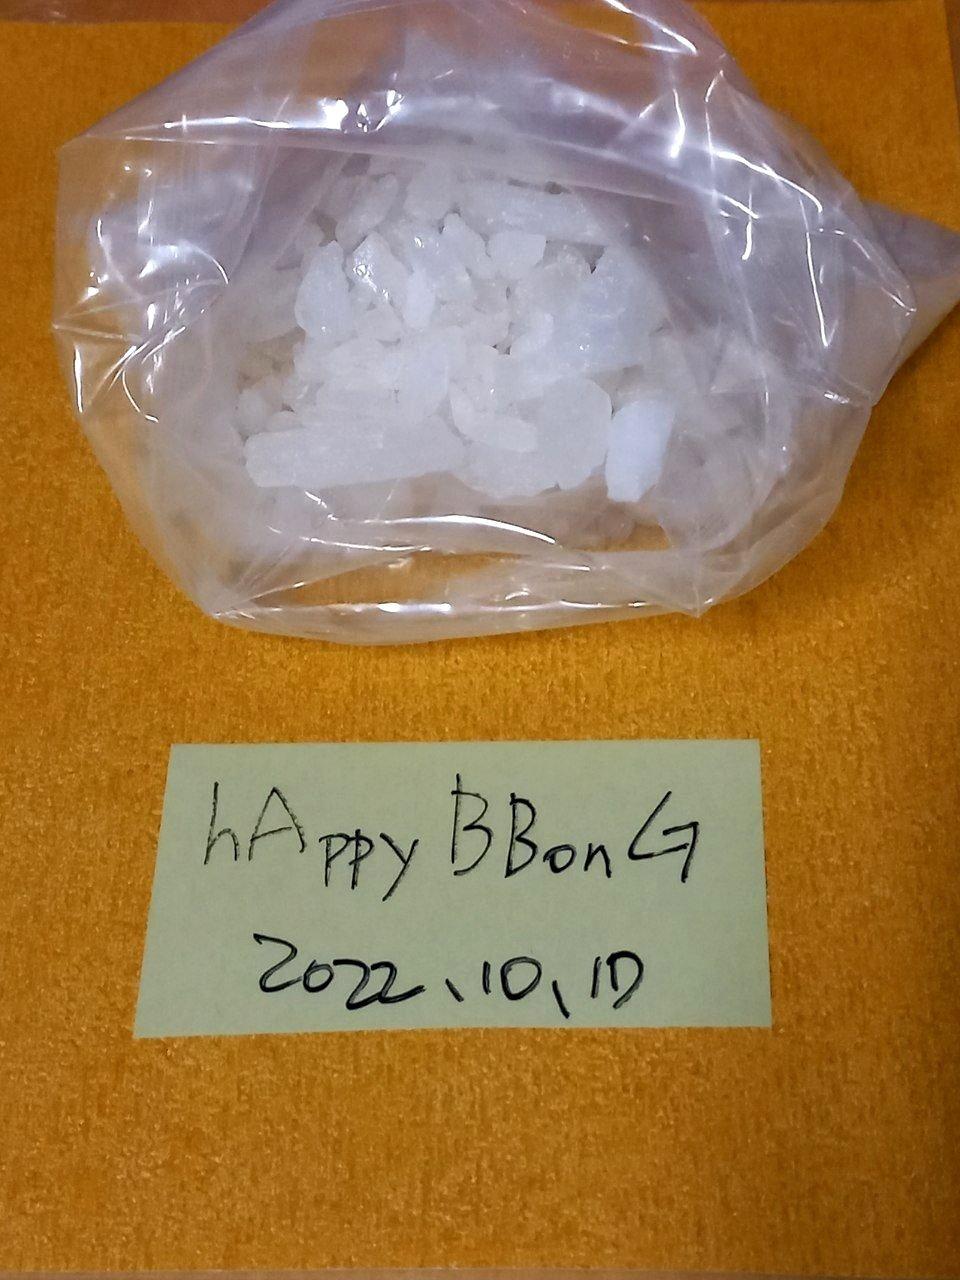 hAppy BBonG
2022.10.10